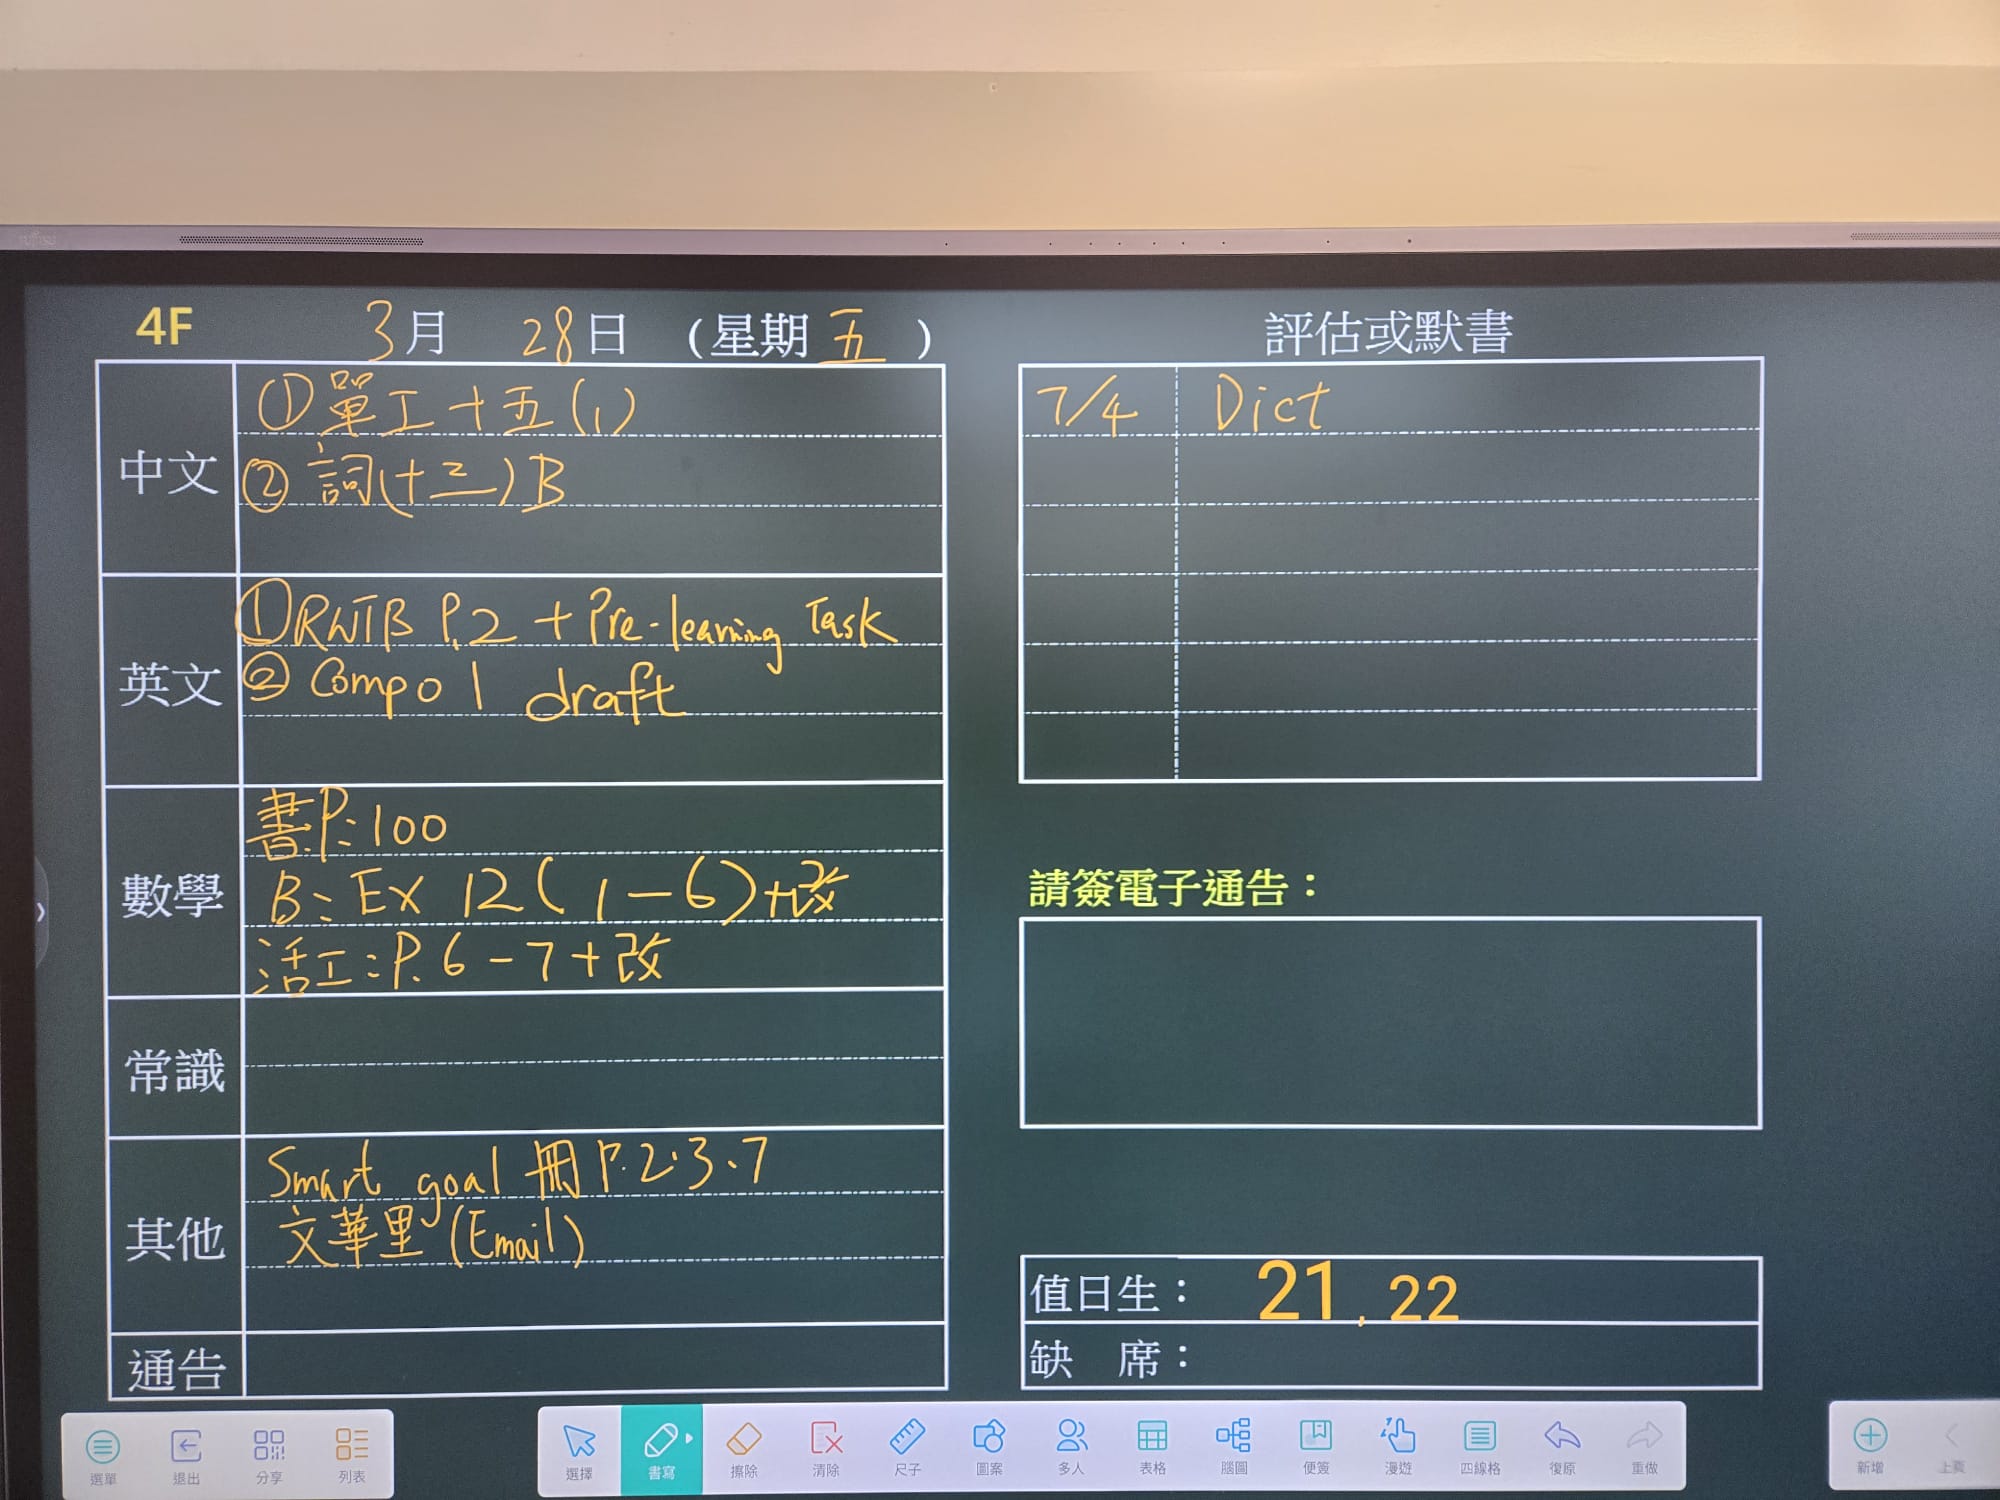 4F 3月 28日 (星期 五 )
中文
①單工十五(1)
②詞(十三)B
英文
①RWTB P.2 + Pre-learning Task
②Compo 1 draft
數學
書P:100
B: EX 12(1-6)+改
活工:P.6-7+改
常識
其他
Smart goal 冊P.2、3、7
文華里(Email)
通告
評估或默書
7/4 Dict
請簽電子通告：
值日生： 21, 22
缺 席：
選單 退出 分享 列表
選擇 書寫 擦除 清除 尺子 圖案 多人 表格 腦圖 便簽 漫遊 四線格 復原 重做
新增 上頁